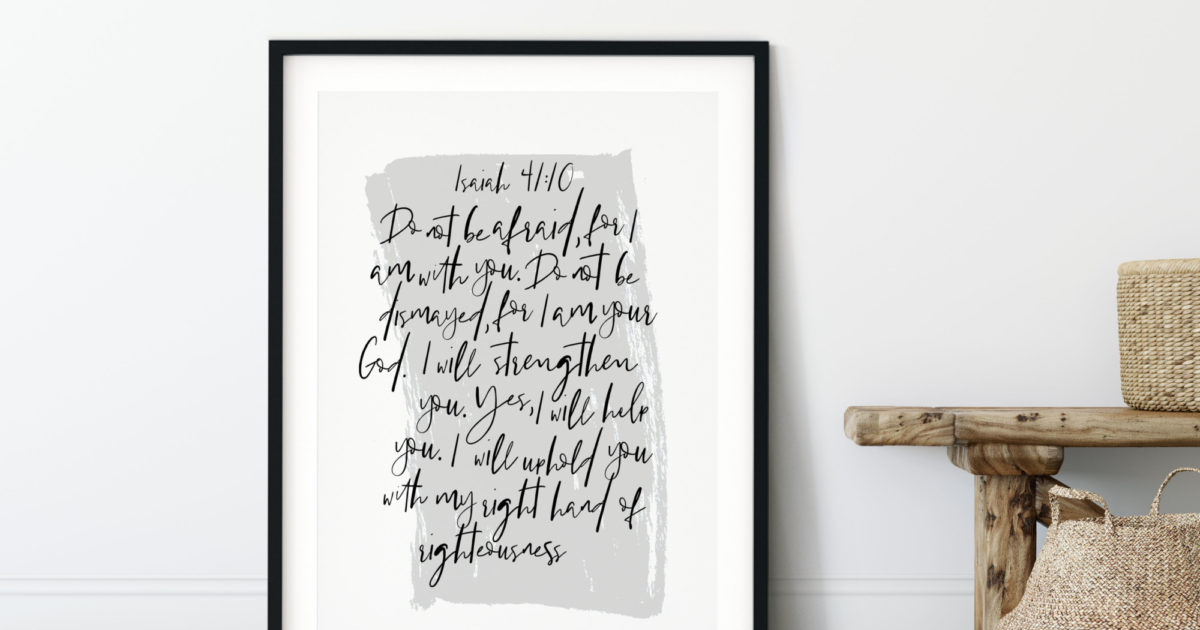 Isaiah 41:10
Do not be afraid, for I
am with you. Do not be
dismayed, for I am your
God. I will strengthen
you. Yes, I will help
you. I will uphold you
with my right hand of
righteousness